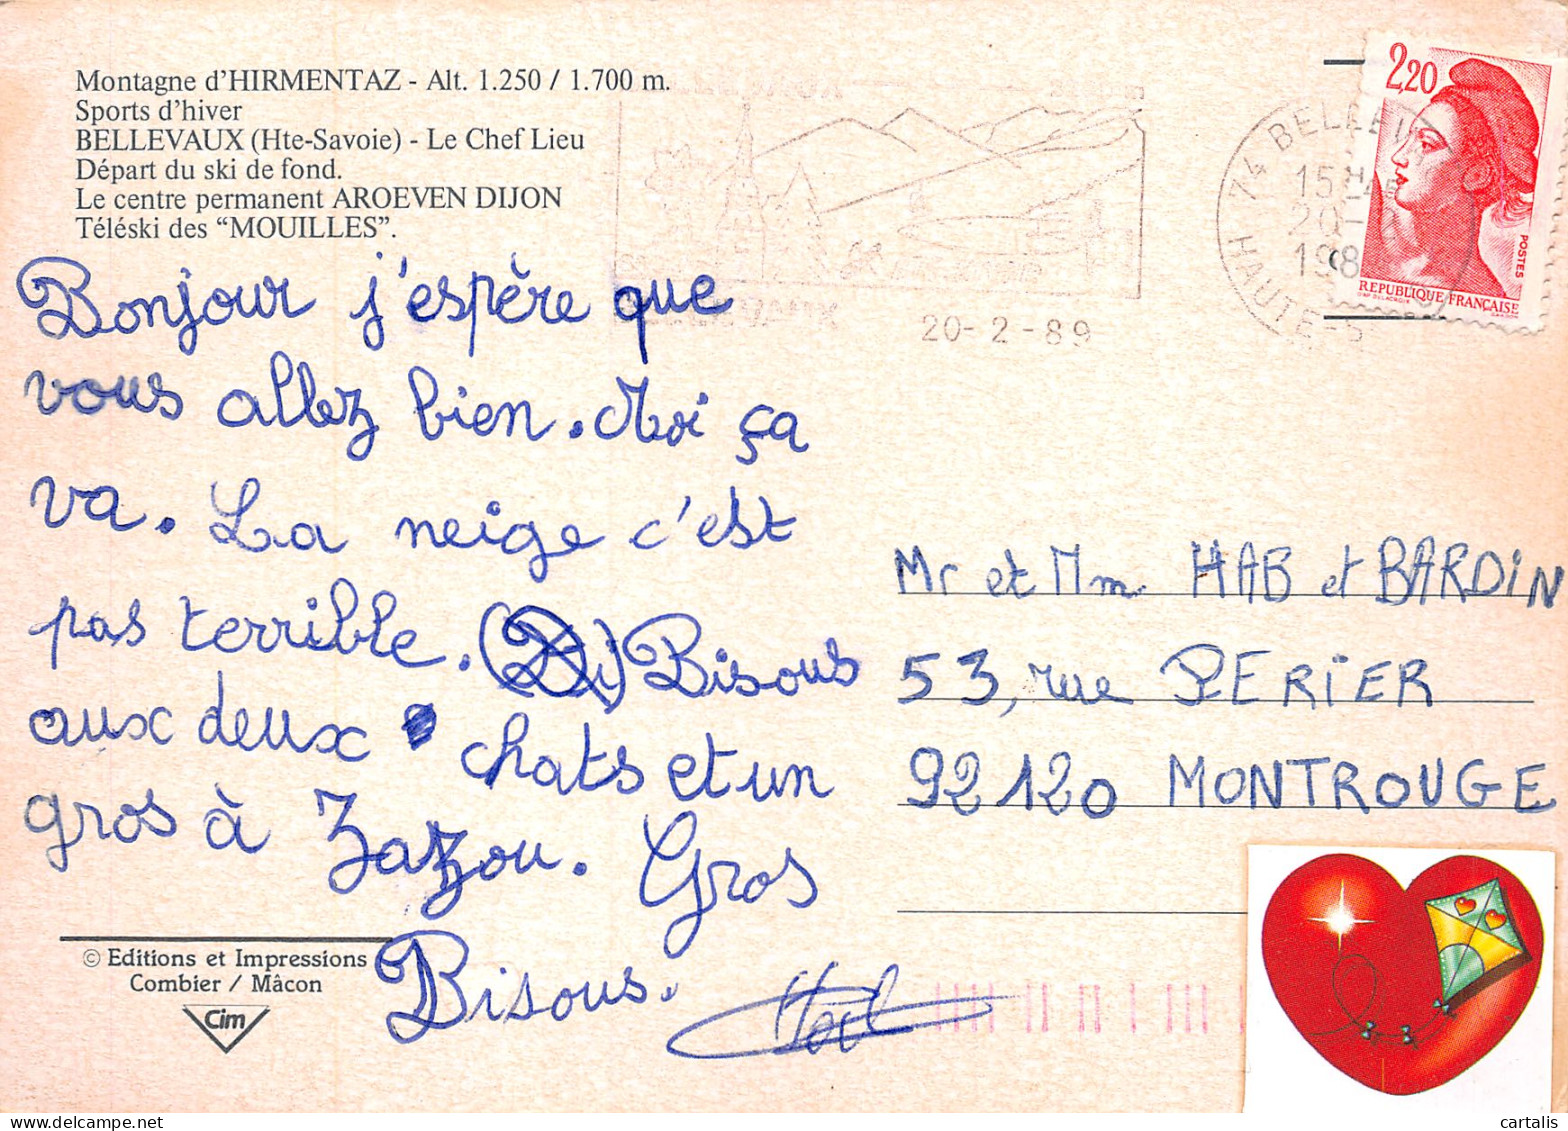 Montagne d'HIRMENTAZ - Alt. 1.250 / 1.700 m.
Sports d'hiver
BELLEVAUX (Hte-Savoie) - Le Chef Lieu
Départ du ski de fond.
Le centre permanent AROEVEN DIJON
Téléski des “MOUILLES”.
20-2-89
74 BELLEVAUX
15H45
20-
198
HAUTE-S
2,20
POSTES
REPUBLIQUE FRANÇAISE
Bonjour j'espère que
vous allez bien. Moi ça
va. La neige c'est
pas terrible. (Bi) Bisous
aux deux chats et un
gros à Zazou. Gros
Bisous.
Mr et Mm HAB et BARDIN
53, rue PERIER
92120 MONTROUGE
© Editions et Impressions
Combier / Mâcon
Cim
cartalis